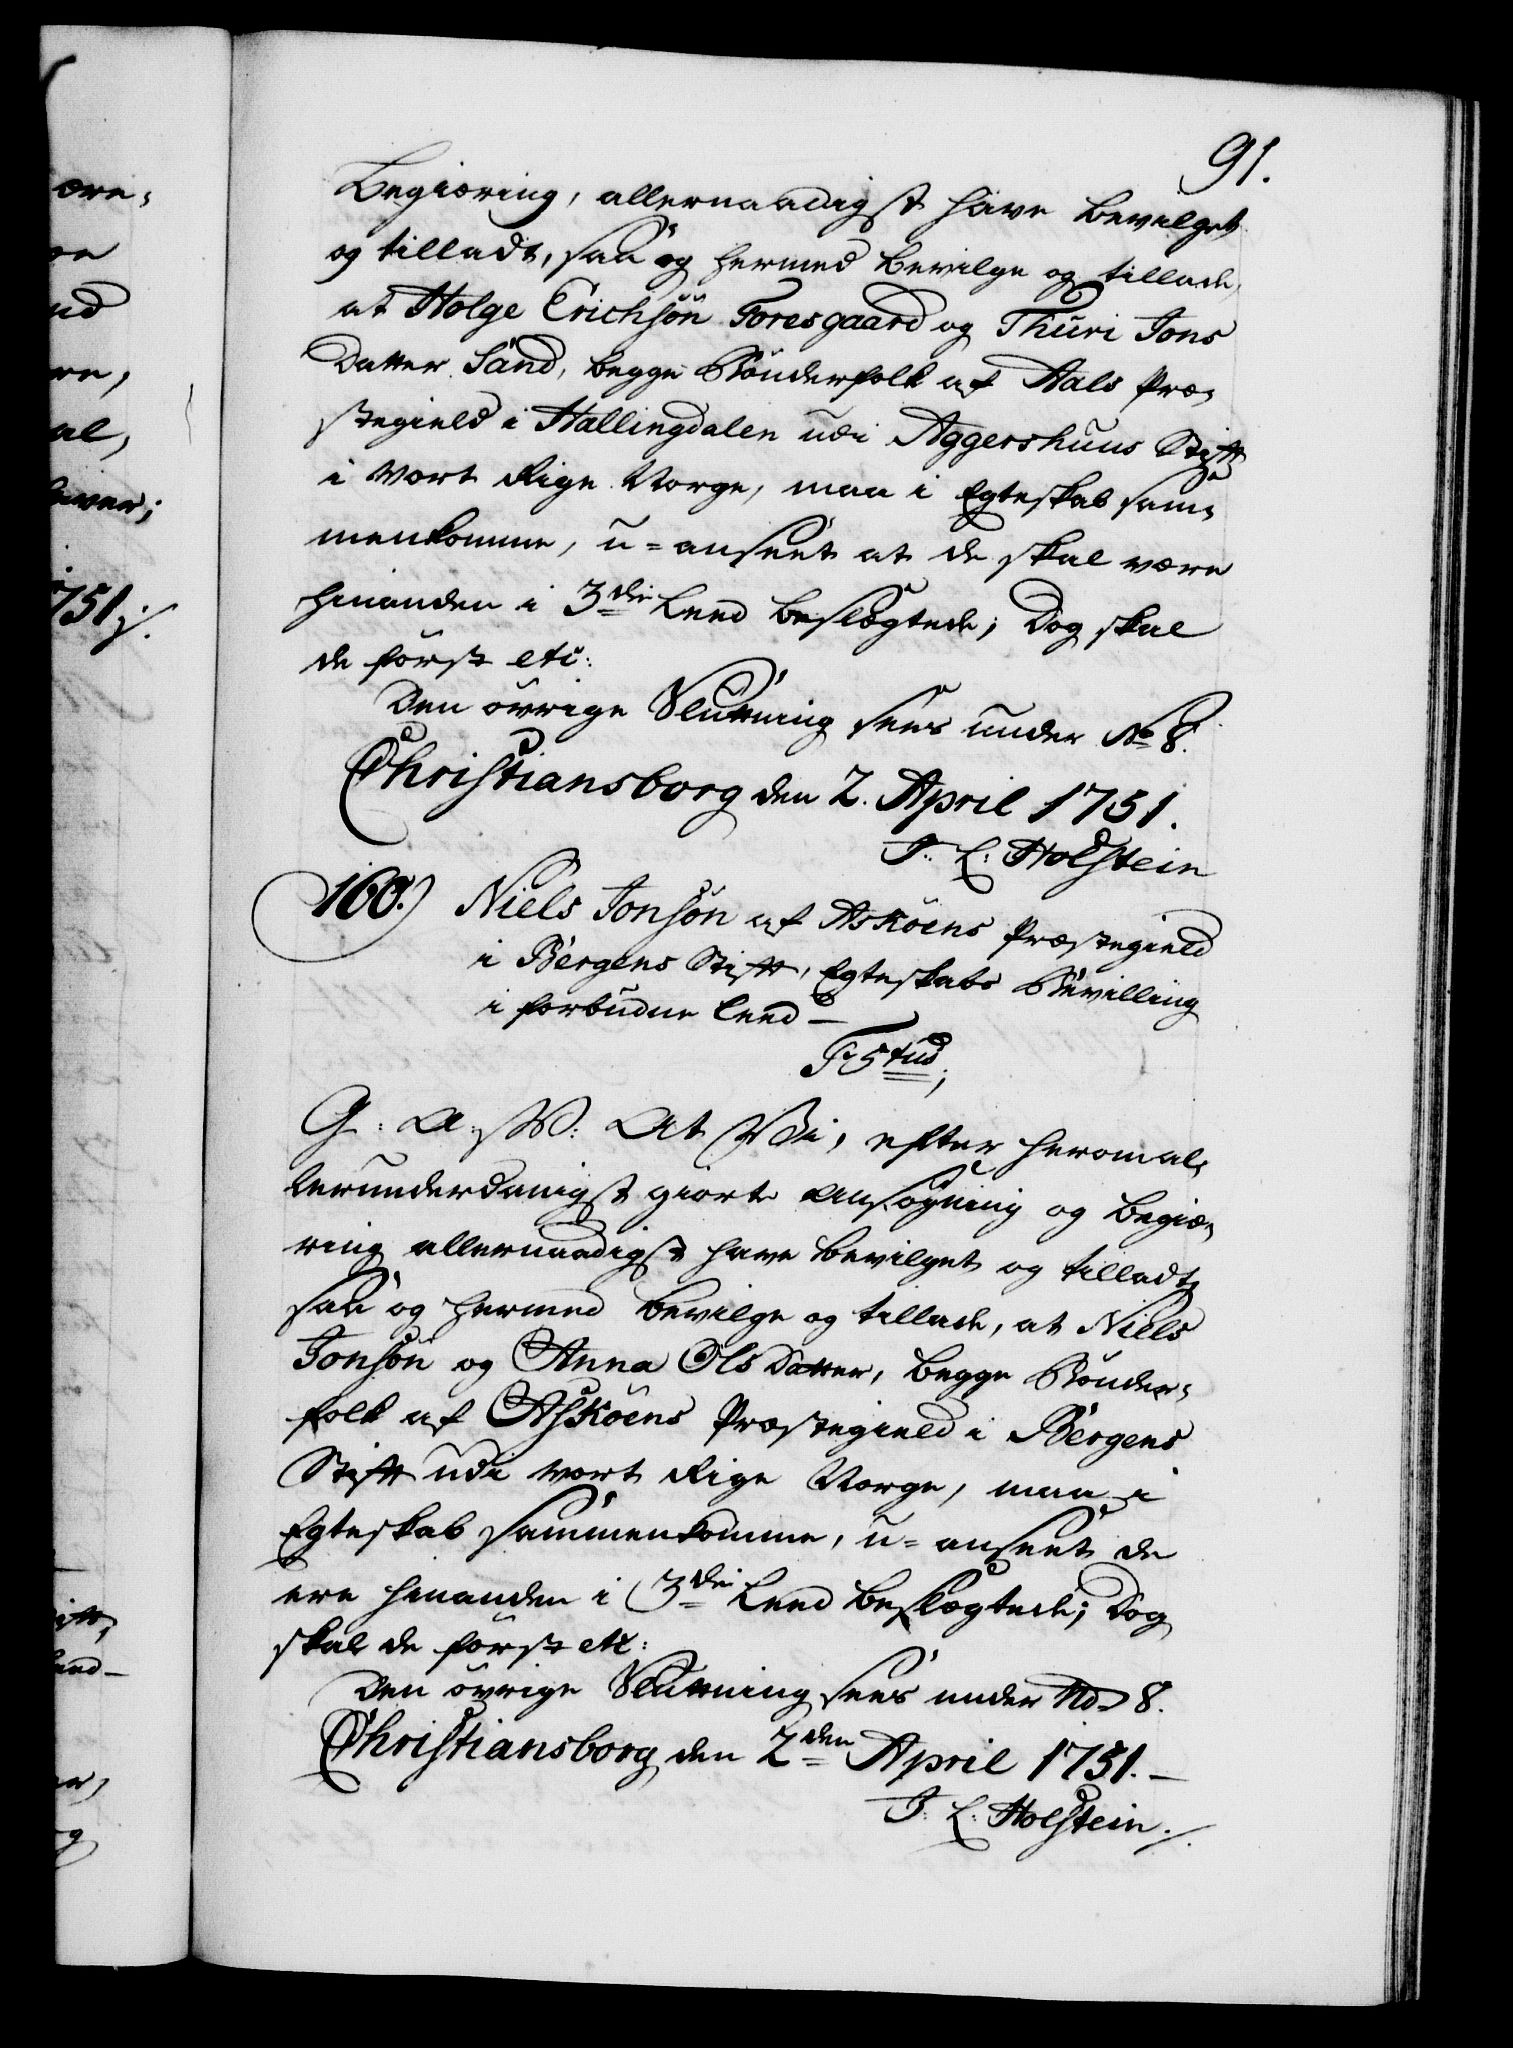 91.
Begiæring, allernaadigst have bevilget
og tilladt, saa og hermed bevilge og tillade,
at Holge Erichsön Toresgaard og Thuri Jons
Datter Sand, begge Bönderfolk af Aals Præ-
stegield i Hallingdalen udi Aggershuus Stift
i Vort Rige Norge, maa i Egteskab sam-
menkomme, u-anseet at de skal være
hinanden i 3die Leed beslægtede; Dog skal
de först etc:
Den övrige Slutning sees under No 8.
Christiansborg den 2. April 1751.
J. L: Holstein
160.) Niels Jonsön af Asköens Præstegield
i Bergens Stift, Egteskabs Bevilling
i forbudne Leed –
F 5tus;
G: A: W: At Vi, efter herom al-
lerunderdanigst giort Ansögning og Begiæ-
ring allernaadigst have bevilget og tilladt,
saa og hermed bevilge og tillade, at Niels
Jonsön og Anna OlsDatter, begge Bönder-
folk af Asköens Præstegield i Bergens
Stift udi vort Rige Norge, maa i
Egteskab sammenkomme, u-anseet de
ere hinanden i 3die Leed beslægtede; Dog
skal de först etc:
Den övrige Slutning sees under No 8.
Christiansborg den 2den April 1751. –
J: L: Holstein./.
ære-
re,
al,
1751 ./.